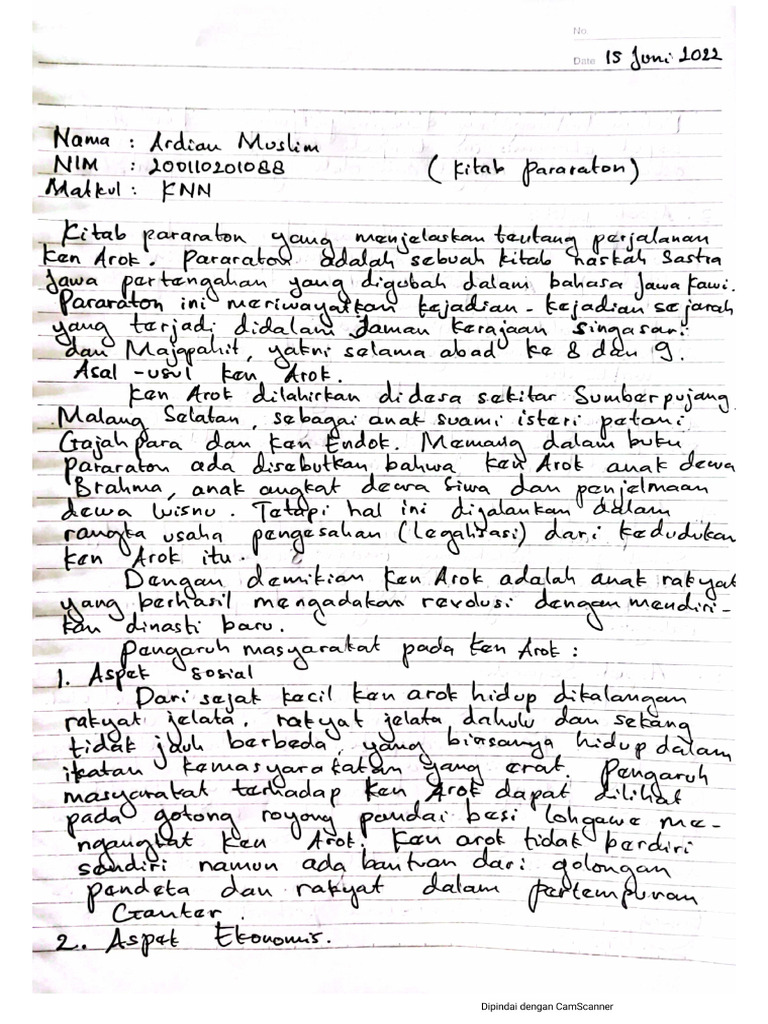 No.
Date 15 Juni 2022
Nama : Ardian Muslim
NIM : 200110201088 (Kitab Pararaton)
Matkul : KNN
Kitab pararaton yang menjelaskan tentang perjalanan
Ken Arok. Pararaton adalah sebuah kitab naskah Sastra
Jawa pertengahan yang digubah dalam bahasa Jawa Kawi.
Pararaton ini meriwayatkan kejadian - kejadian sejarah
yang terjadi didalam Jaman kerajaan Singasari
dan Majapahit, yakni selama abad ke 8 dan 9.
Asal - usul Ken Arok.
Ken Arok dilahirkan di desa sekitar Sumberpujang
Malang Selatan, sebagai anak suami isteri petani
Gajah para dan Ken Endok. Memang dalam buku
pararaton ada disebutkan bahwa Ken Arok anak dewa
Brahma, anak angkat dewa Siwa dan penjelmaan
dewa wisnu. Tetapi hal ini dijalankan dalam
rangka usaha pengesahan (legalisasi) dari kedudukan
Ken Arok itu.
Dengan demikian Ken Arok adalah anak rakyat
yang berhasil mengadakan revolusi dengan mendiri-
kan dinasti baru.
Pengaruh masyarakat pada Ken Arok :
1. Aspek sosial
Dari sejak kecil Ken arok hidup dikalangan
rakyat jelata. rakyat jelata dahulu dan sekang
tidak jauh berbeda, yang biasanya hidup dalam
ikatan kemasyarakatan yang erat. Pengaruh
masyarakat terhadap Ken Arok dapat dilihat
pada gotong royong pandai besi lohgawe me-
ngangkat Ken Arok. Ken arok tidak berdiri
sendiri namun ada bantuan dari golongan
pendeta dan rakyat dalam pertempuran
Ganter.
2. Aspek Ekonomis.
Dipindai dengan CamScanner